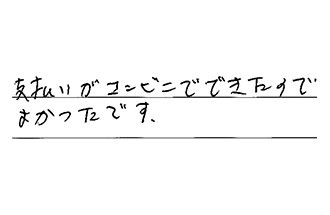 支払いがコンビニでできたので
よかったです.